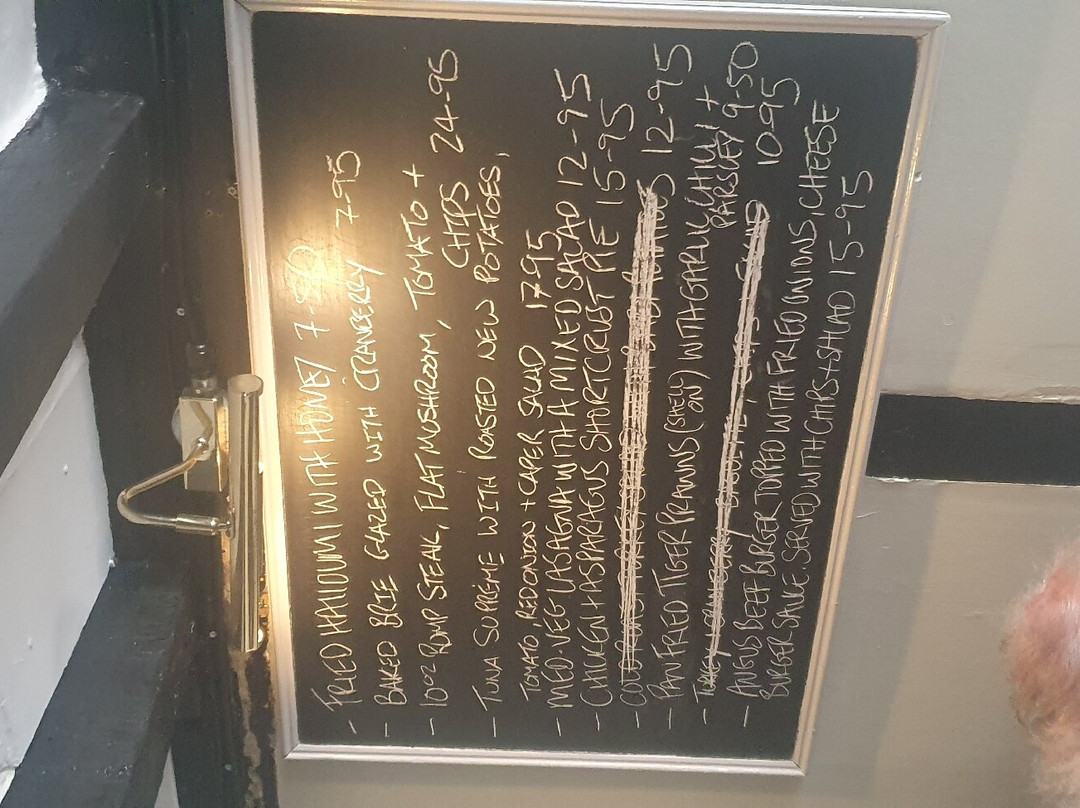 - FRIED HALLOUMI WITH HONEY 7-50
- BAKED BRIE GLAZED WITH CRANBERRY 7-95
- 10oz RUMP STEAK, FLAT MUSHROOM, TOMATO +
CHIPS 24-95
- TUNA SUPRÉME WITH ROASTED NEW POTATOES,
TOMATO, RED ONION + CAPER SALAD 17-95
- MED-VEG LASAGNA WITH A MIXED SALAD 12-95
- CHICKEN + ASPARAGUS SHORTCRUST PIE 15-95
- 12-95
- PAN FRIED TIGER PRAWNS (SHELL ON) WITH GARLIC, CHILLI +
PARSLEY 9-50
- 10-95
- ANGUS BEEF BURGER TOPPED WITH FRIED ONIONS, CHEESE
BURGER SAUCE SERVED WITH CHIPS + SALAD 15-95